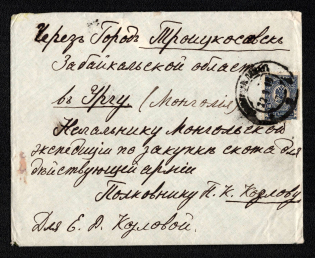 Черезъ Городъ Троицкосавскъ
Забайкальской области
въ Ургу (Монголія)
Начальнику Монгольской
экспедиціи по закупкѣ скота для
действующей арміи
Полковнику П. К. Козлову
Для Е. В. Козловой.